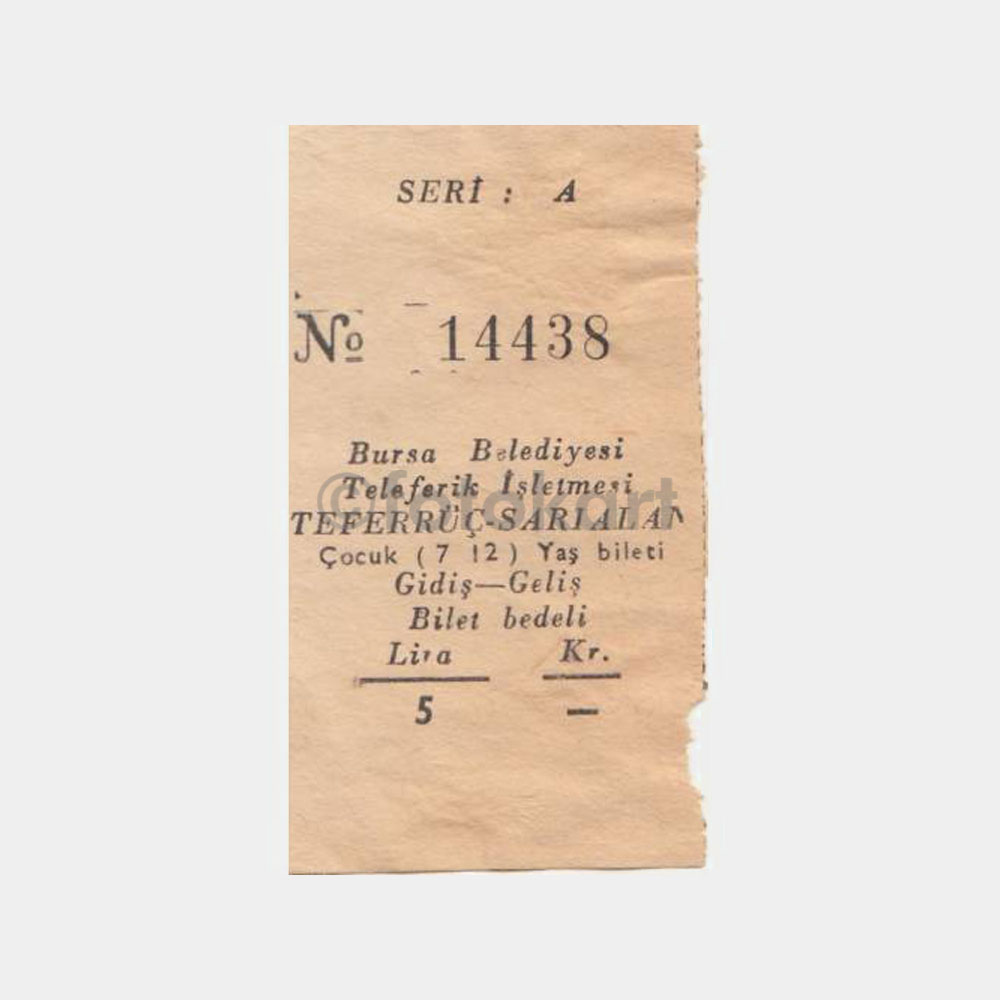 SERİ : A
No 14438
Bursa Belediyesi
Teleferik İşletmesi
TEFERRÜÇ-SARIALAN
Çocuk ( 7 12 ) Yaş bileti
Gidiş—Geliş
Bilet bedeli
Lira Kr.
5 —
©fotokart